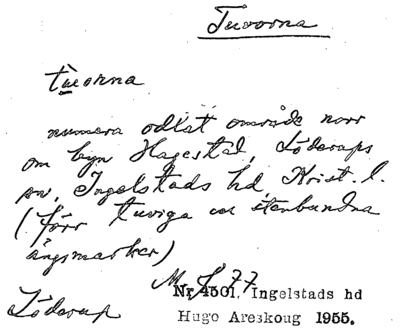 Tuvorna
tuvorna
numera odlat område norr
om byn Hagestad, Löderups
sn, Ingelstads hd, Krist. l.
(förr tuviga och stenbundna
ängsmarker)
Löderup
Nr 4501. Ingelstads hd
Hugo Areskoug 1955.